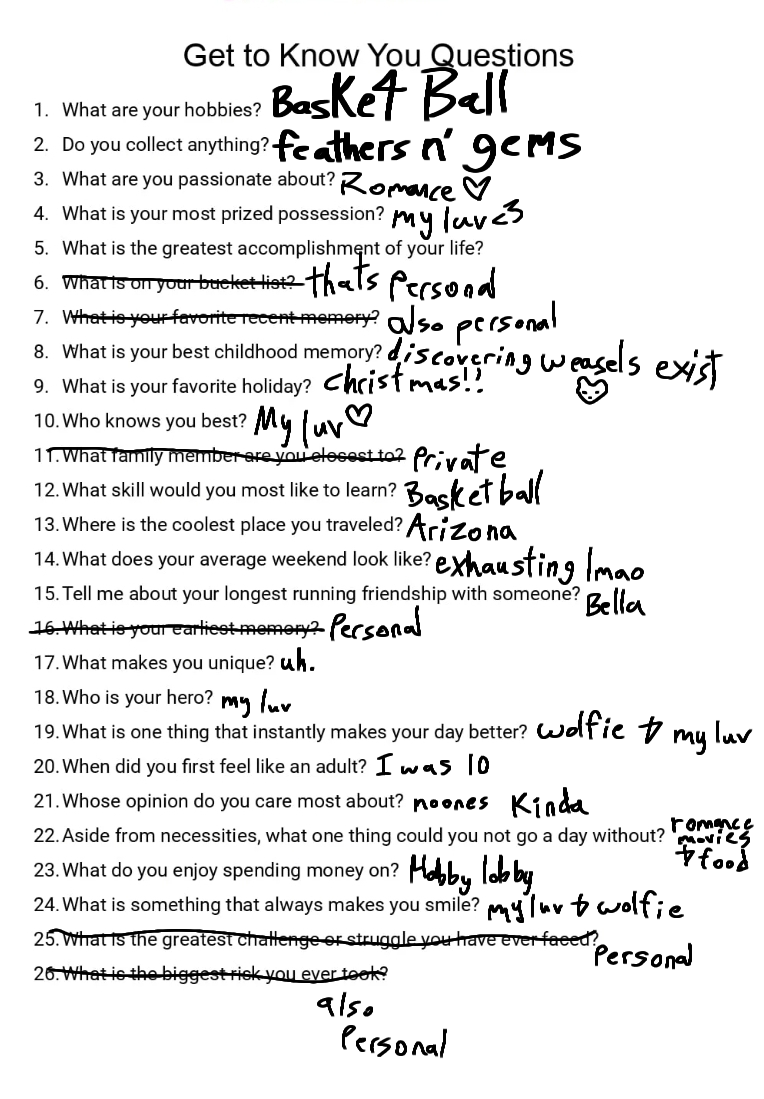 Get to Know You Questions
1. What are your hobbies? BasKet Ball
2. Do you collect anything? feathers n' gems
3. What are you passionate about? Romance ♡
4. What is your most prized possession? my luv <3
5. What is the greatest accomplishment of your life?
6. What is on your bucket list? thats Personal
7. What is your favorite recent memory? also personal
8. What is your best childhood memory? discovering weasels exist
9. What is your favorite holiday? christmas!!
10. Who knows you best? My luv ♡
11. What family member are you closest to? Private
12. What skill would you most like to learn? Basketball
13. Where is the coolest place you traveled? Arizona
14. What does your average weekend look like? exhausting lmao
15. Tell me about your longest running friendship with someone? Bella
16. What is your earliest memory? Personal
17. What makes you unique? uh.
18. Who is your hero? my luv
19. What is one thing that instantly makes your day better? wolfie & my luv
20. When did you first feel like an adult? I was 10
21. Whose opinion do you care most about? noones Kinda
22. Aside from necessities, what one thing could you not go a day without? romance movies & food
23. What do you enjoy spending money on? Hobby lobby
24. What is something that always makes you smile? my luv & wolfie
25. What is the greatest challenge or struggle you have ever faced? Personal
26. What is the biggest risk you ever took?
also
Personal